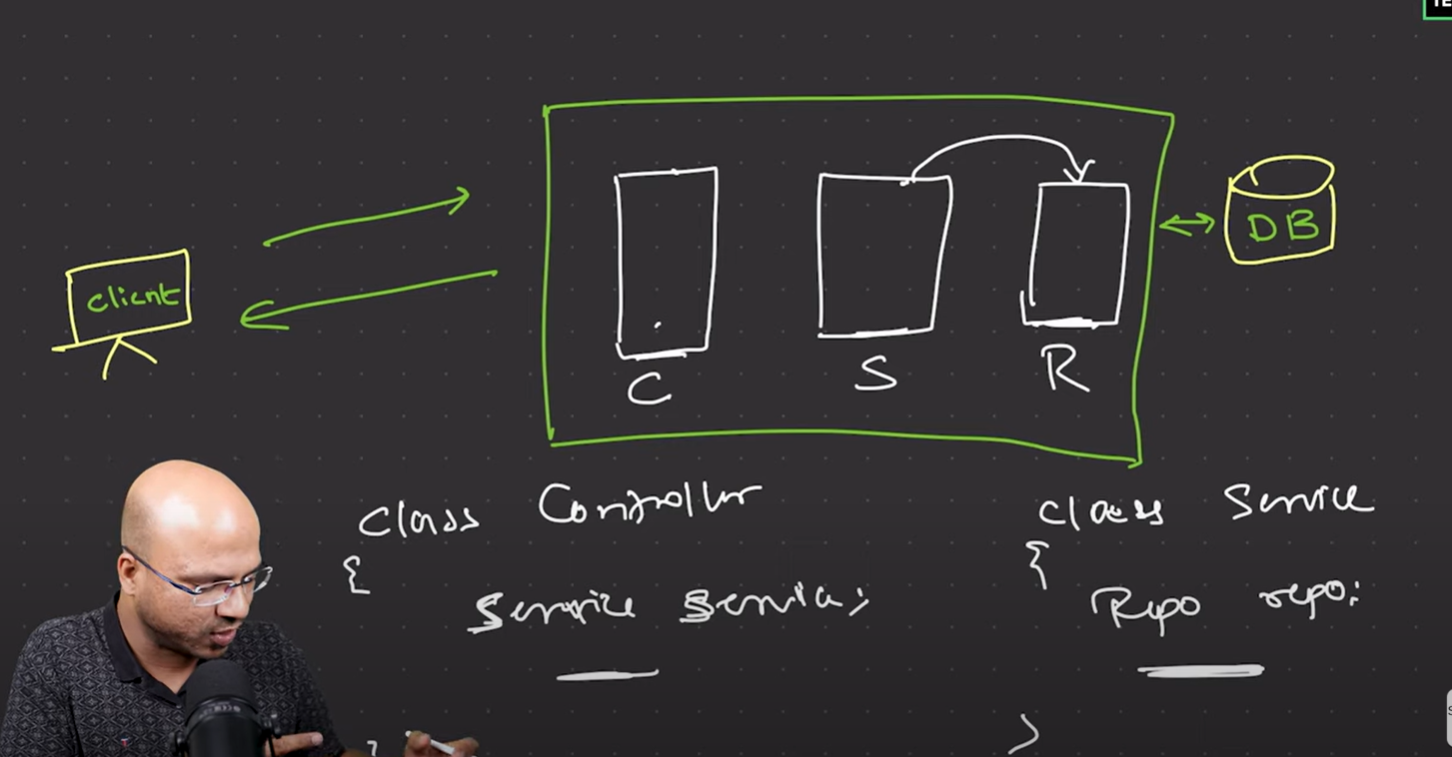 client
DB
C
S
R
class Controller
{
Service service;
class Service
{
Repo repo;
}
}